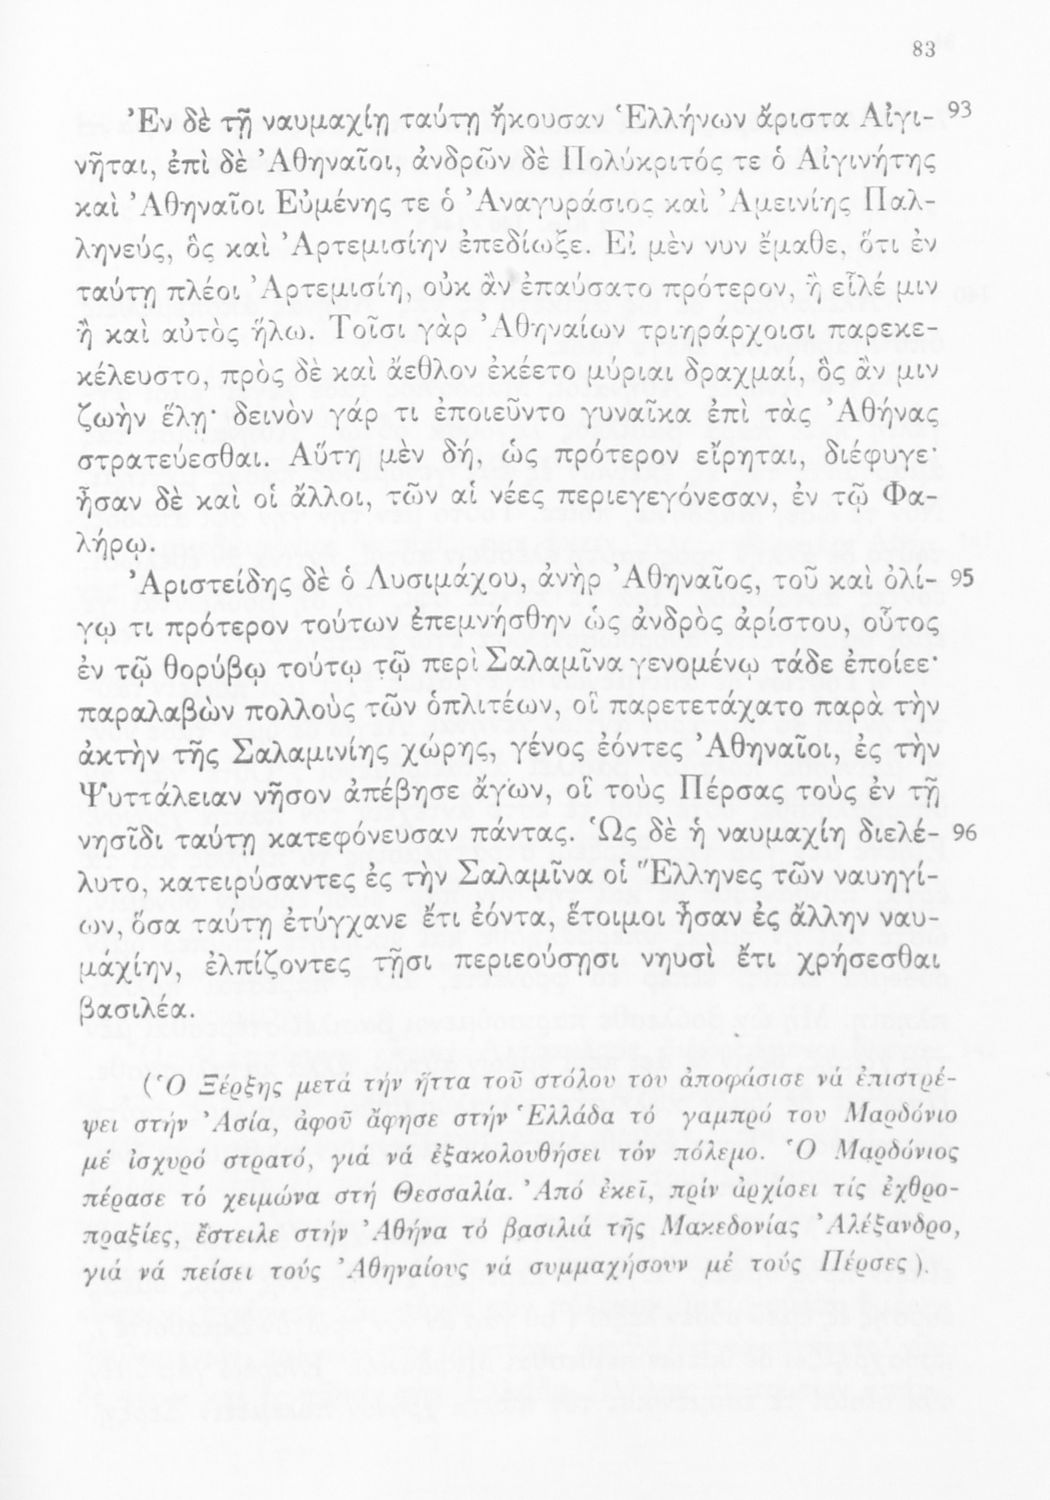 83
Ἐν δὲ τῇ ναυμαχίῃ ταύτῃ ἤκουσαν Ἑλλήνων ἄριστα Αἰγι- 93
νῆται, ἐπὶ δὲ Ἀθηναῖοι, ἀνδρῶν δὲ Πολύκριτός τε ὁ Αἰγινήτης
καὶ Ἀθηναῖοι Εὐμένης τε ὁ Ἀναγυράσιος καὶ Ἀμεινίης Παλ-
ληνεύς, ὃς καὶ Ἀρτεμισίην ἐπεδίωξε. Εἰ μὲν νυν ἔμαθε, ὅτι ἐν
ταύτῃ πλέοι Ἀρτεμισίη, οὐκ ἂν ἐπαύσατο πρότερον, ἢ εἷλέ μιν
ἢ καὶ αὐτὸς ἥλω. Τοῖσι γὰρ Ἀθηναίων τριηράρχοισι παρεκε-
κέλευστο, πρὸς δὲ καὶ ἄεθλον ἐκέετο μύριαι δραχμαί, ὃς ἄν μιν
ζωὴν ἕλῃ· δεινὸν γάρ τι ἐποιεῦντο γυναῖκα ἐπὶ τὰς Ἀθήνας
στρατεύεσθαι. Αὕτη μὲν δή, ὡς πρότερον εἴρηται, διέφυγε·
ἦσαν δὲ καὶ οἱ ἄλλοι, τῶν αἱ νέες περιεγεγόνεσαν, ἐν τῷ Φα-
λήρῳ.
Ἀριστείδης δὲ ὁ Λυσιμάχου, ἀνὴρ Ἀθηναῖος, τοῦ καὶ ὀλί- 95
γῳ τι πρότερον τούτων ἐπεμνήσθην ὡς ἀνδρὸς ἀρίστου, οὗτος
ἐν τῷ θορύβῳ τούτῳ τῷ περὶ Σαλαμῖνα γενομένῳ τάδε ἐποίεε·
παραλαβὼν πολλοὺς τῶν ὁπλιτέων, οἳ παρετετάχατο παρὰ τὴν
ἀκτὴν τῆς Σαλαμινίης χώρης, γένος ἐόντες Ἀθηναῖοι, ἐς τὴν
Ψυττάλειαν νῆσον ἀπέβησε ἄγων, οἳ τοὺς Πέρσας τοὺς ἐν τῇ
νησῖδι ταύτῃ κατεφόνευσαν πάντας. Ὡς δὲ ἡ ναυμαχίη διελέ- 96
λυτο, κατειρύσαντες ἐς τὴν Σαλαμῖνα οἱ Ἕλληνες τῶν ναυηγί-
ων, ὅσα ταύτῃ ἐτύγχανε ἔτι ἐόντα, ἕτοιμοι ἦσαν ἐς ἄλλην ναυ-
μάχίην, ἐλπίζοντες τῇσι περιεούσῃσι νηυσὶ ἔτι χρήσεσθαι
βασιλέα.
(Ὁ Ξέρξης μετά τήν ἥττα τοῦ στόλου του ἀποφάσισε νά ἐπιστρέ-
ψει στήν Ἀσία, ἀφοῦ ἄφησε στήν Ἑλλάδα τό γαμπρό του Μαρδόνιο
μέ ἰσχυρό στρατό, γιά νά ἐξακολουθήσει τόν πόλεμο. Ὁ Μαρδόνιος
πέρασε τό χειμώνα στή Θεσσαλία. Ἀπό ἐκεῖ, πρίν ἀρχίσει τίς ἐχθρο-
πραξίες, ἔστειλε στήν Ἀθήνα τό βασιλιά τῆς Μακεδονίας Ἀλέξανδρο,
γιά νά πείσει τούς Ἀθηναίους νά συμμαχήσουν μέ τούς Πέρσες).